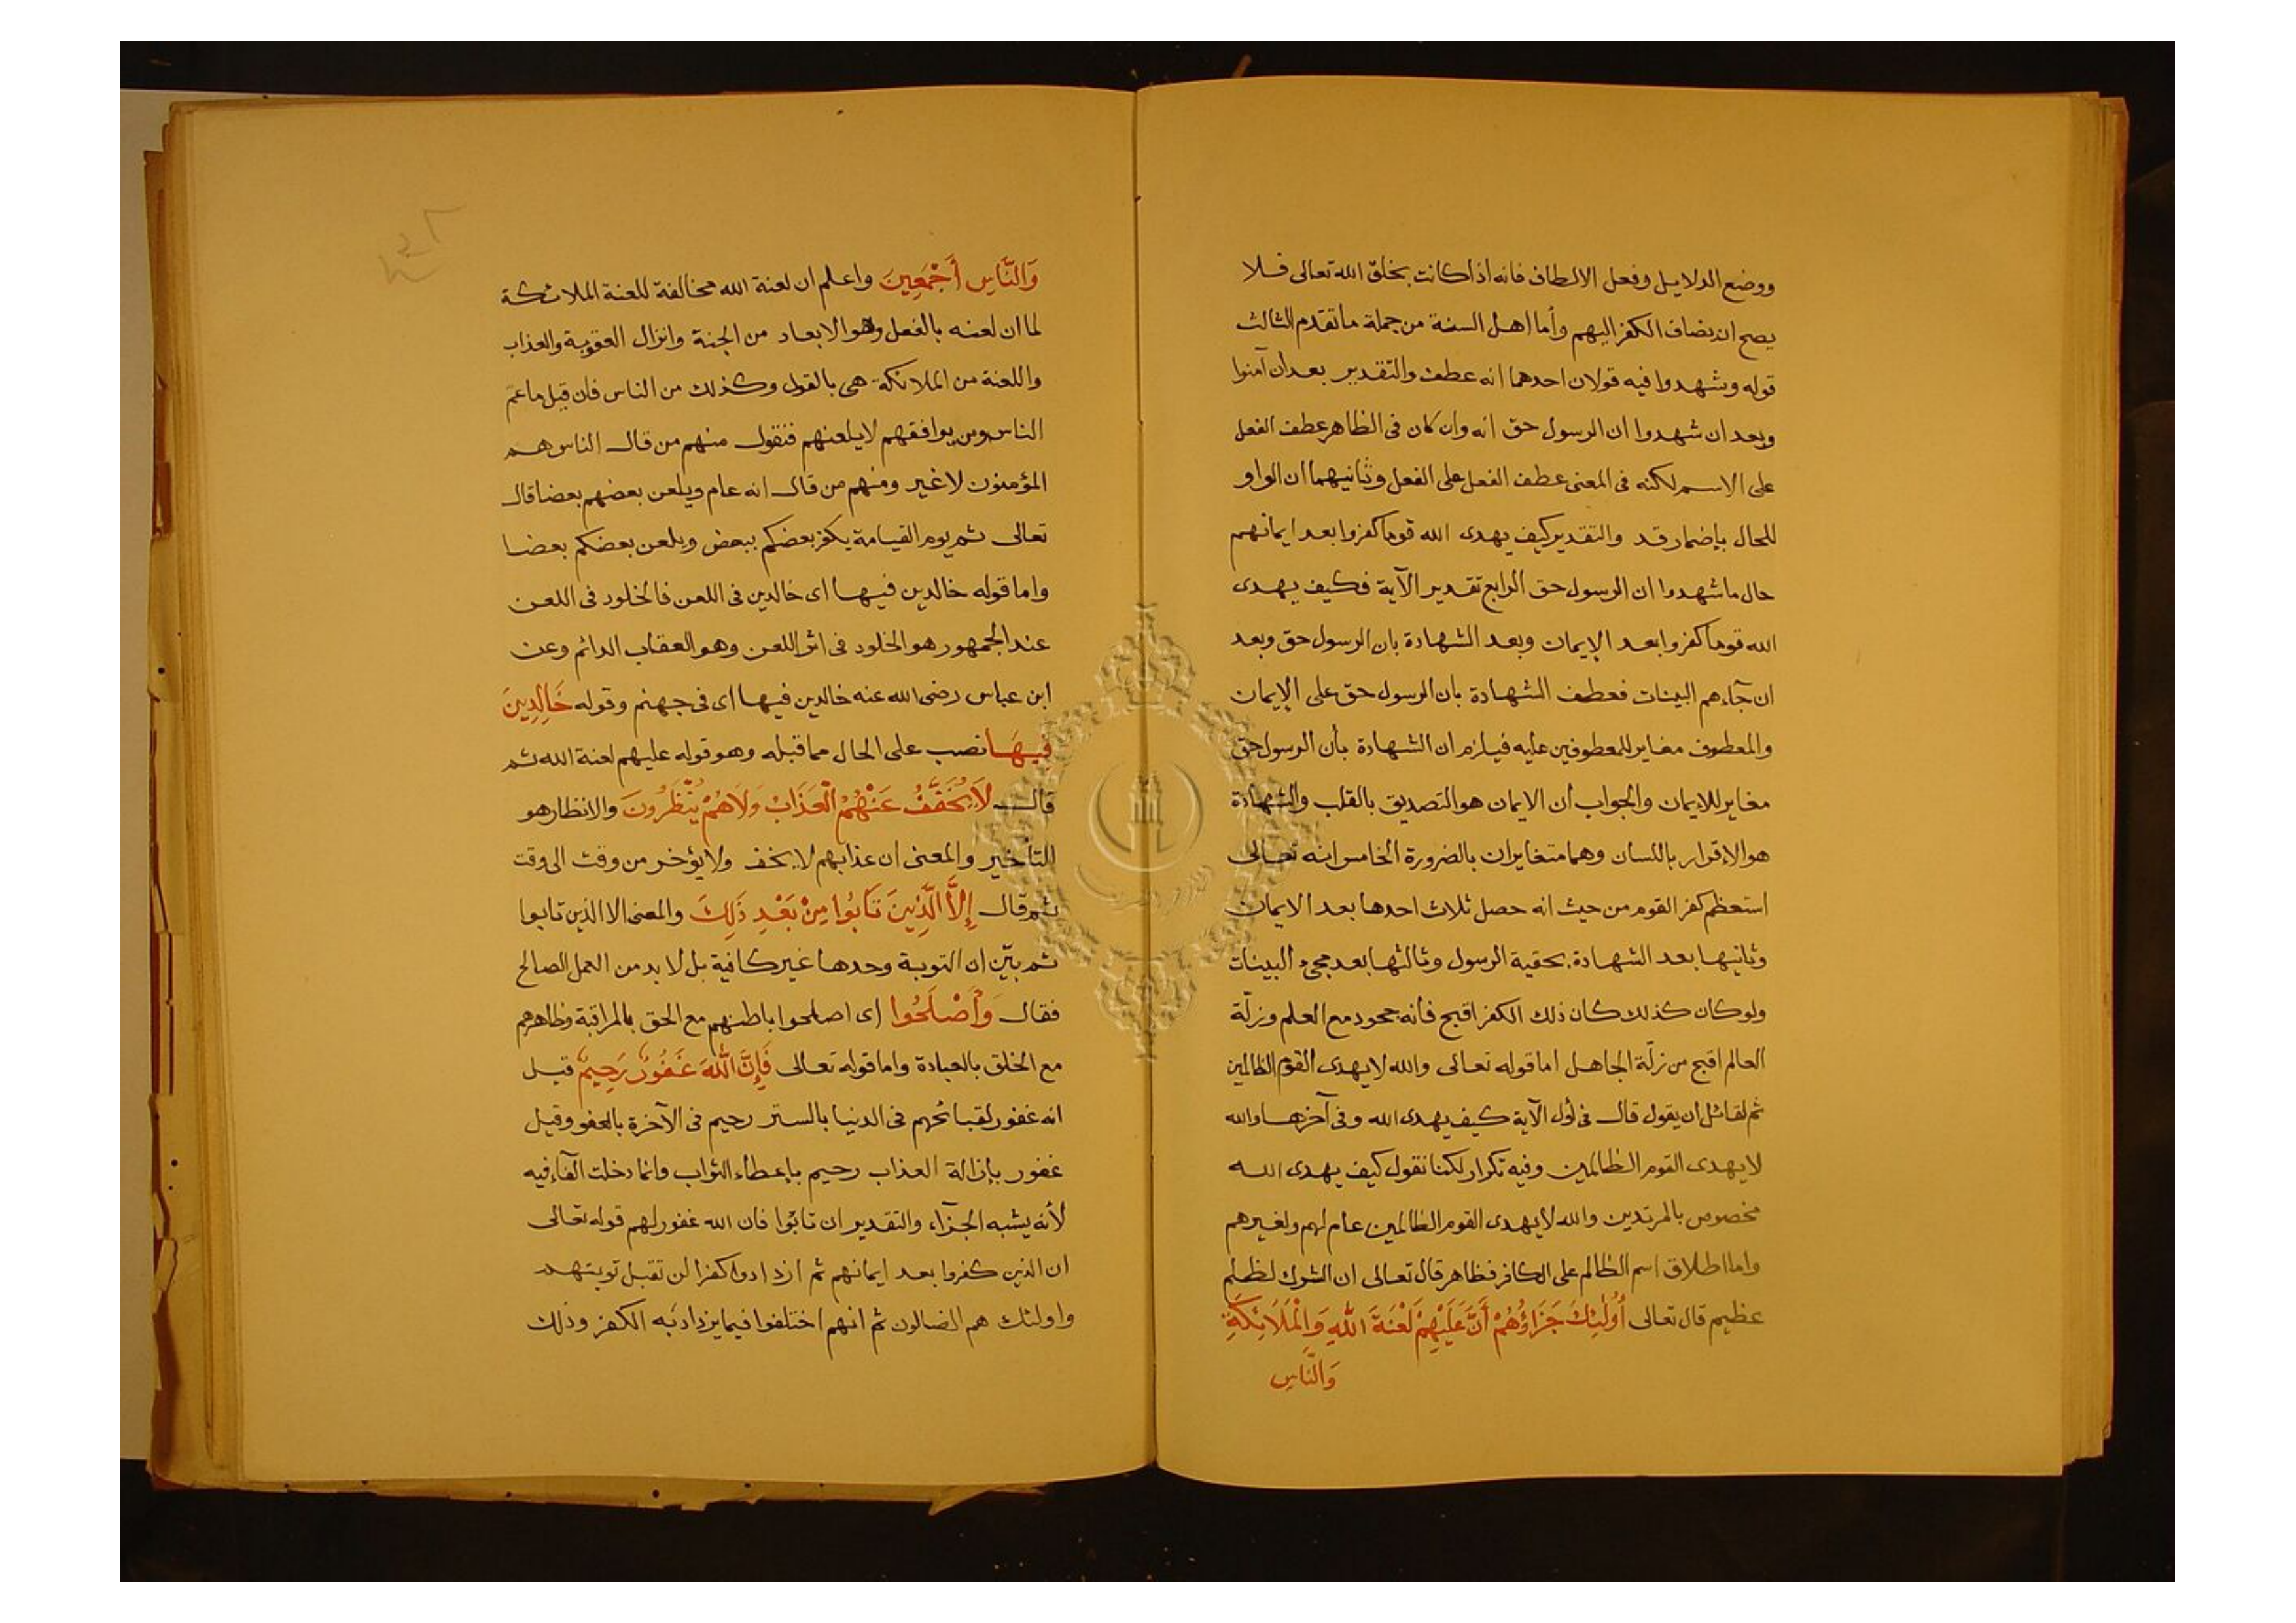 ووضع الدلايل وفعل الالطاف فانه اذا كانت بخلق الله تعالى فلا
يصح ان يضاف الكفر اليهم وأما اهل السنة من جملة ما تقدم الثالث
قوله وشهدوا فيه قولان احدهما انه عطف والتقدير بعد أن آمنوا
وبعد ان شهدوا ان الرسول حق انه وان كان فى الظاهر عطف الفعل
على الاسم لكنه فى المعنى عطف الفعل على الفعل وثانيهما ان الواو
للحال بإضمار قد والتقدير كيف يهدى الله قوما كفروا بعد ايمانهم
حال ما شهدوا ان الرسول حق الرابع تقدير الآية فكيف يهدى
الله قوما كفروا بعد الإيمان وبعد الشهادة بان الرسول حق وبعد
ان جآءهم البينات فعطف الشهادة بان الرسول حق على الإيمان
والمعطوف مغاير للمعطوفين عليه فيلزم ان الشهادة بأن الرسول حق
مغاير للايمان والجواب أن الايمان هو التصديق بالقلب والشهادة
هو الإقرار باللسان وهما متغايران بالضرورة الخامس انه تعالى
استعظم كفر القوم من حيث انه حصل ثلاث احدها بعد الايمان
وثانيها بعد الشهادة بحقية الرسول وثالثها بعد مجىء البينات
ولو كان كذلك كان ذلك الكفر اقبح فأنه جحود مع العلم وزلّة
العالم اقبح من زلّة الجاهل اما قوله تعالى والله لا يهدى القوم الظالمين
ثم لقائل ان يقول قال فى أول الآية كيف يهدى الله وفى آخرها والله
لا يهدى القوم الظالمين وفيه تكرار لكنا نقول كيف يهدى الله
مخصوص بالمرتدين والله لا يهدى القوم الظالمين عام لهم ولغيرهم
واما اطلاق اسم الظالم على الكافر فظاهر قال تعالى ان الشرك لظلم
عظيم قال تعالى أُولَٰئِكَ جَزَاؤُهُمْ أَنَّ عَلَيْهِمْ لَعْنَةَ اللَّهِ وَالْمَلَائِكَةِ
وَالنَّاسِ
وَالنَّاسِ أَجْمَعِينَ واعلم ان لعنة الله مخالفة للعنة الملائكة
لما ان لعنه بالفعل وهو الابعاد من الجنة وانزال العقوبة والعذاب
واللعنة من الملائكة هى بالقول وكذلك من الناس فان قيل ما عمّ
الناس ومن يوافقهم لا يلعنهم فنقول منهم من قال الناس هم
المؤمنون لا غير ومنهم من قال انه عام ويلعن بعضهم بعضا قال
تعالى ثم يوم القيامة يكفر بعضكم ببعض ويلعن بعضكم بعضا
واما قوله خالدين فيها اى خالدين فى اللعن فالخلود فى اللعن
عند الجمهور هو الخلود فى اثر اللعن وهو العقاب الدائم وعن
ابن عباس رضى الله عنه خالدين فيها اى فى جهنم وقوله خَالِدِينَ
فِيهَا نصب على الحال مما قبله وهو قوله عليهم لعنة الله ثم
قال لَا يُخَفَّفُ عَنْهُمُ الْعَذَابُ وَلَا هُمْ يُنْظَرُونَ والانظار هو
التأخير والمعنى ان عذابهم لا يخف ولا يؤخر من وقت الى وقت
ثم قال إِلَّا الَّذِينَ تَابُوا مِنْ بَعْدِ ذَلِكَ والمعنى الا الذين تابوا
ثم بيّن ان التوبة وحدها غير كافية بل لا بد من العمل الصالح
فقال وَأَصْلَحُوا اى اصلحوا باطنهم مع الحق بالمراقبة وظاهرهم
مع الخلق بالعبادة واما قوله تعالى فَإِنَّ اللَّهَ غَفُورٌ رَحِيمٌ قيل
انه غفور لقبائحهم فى الدنيا بالستر رحيم فى الآخرة بالعفو وقيل
غفور بإزالة العذاب رحيم بإعطاء الثواب وانما دخلت الفآء فيه
لأنه يشبه الجزآء والتقدير ان تابوا فان الله غفور لهم قوله تعالى
ان الذين كفروا بعد ايمانهم ثم ازدادوا كفرا لن تقبل توبتهم
واولئك هم الضالون ثم انهم اختلفوا فيما يزداد به الكفر وذلك